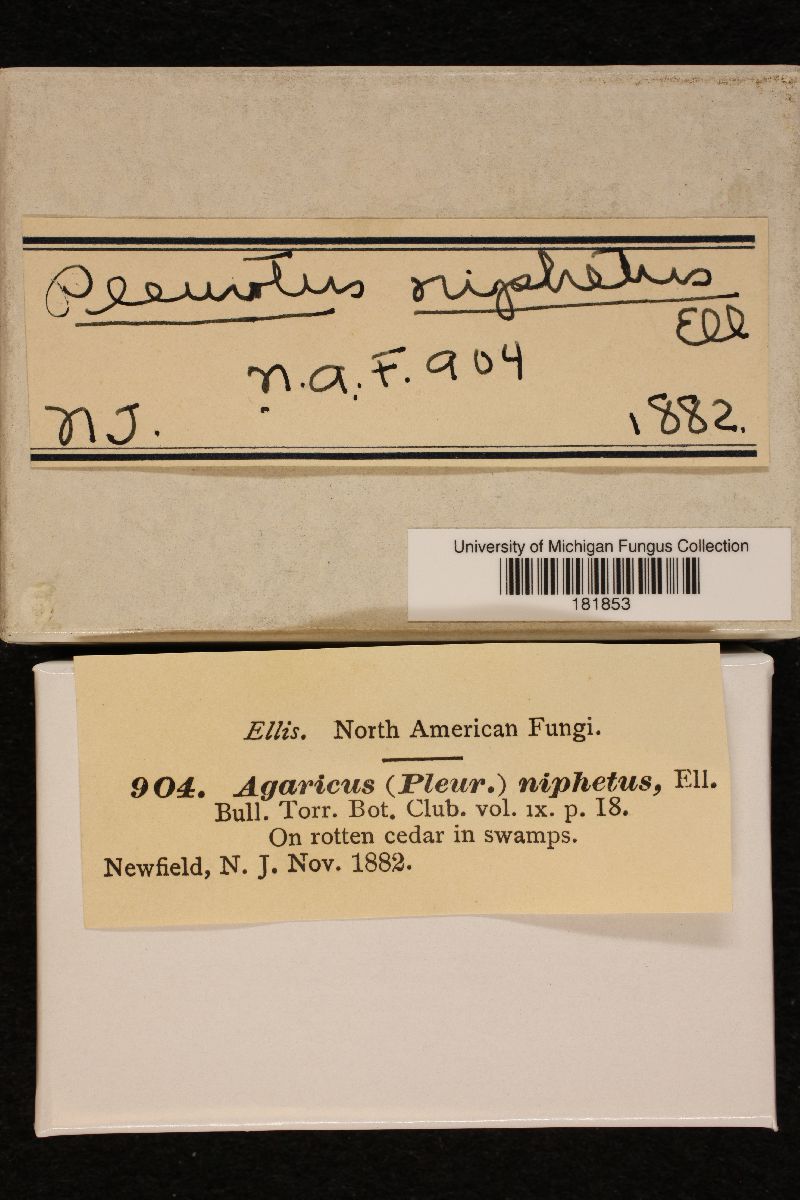 Pleurotus niphetus
Ell
N.A.F. 904
NJ. 1882.
University of Michigan Fungus Collection
181853
Ellis. North American Fungi.
904. Agaricus (Pleur.) niphetus, Ell.
Bull. Torr. Bot. Club. vol. IX. p. 18.
On rotten cedar in swamps.
Newfield, N. J. Nov. 1882.